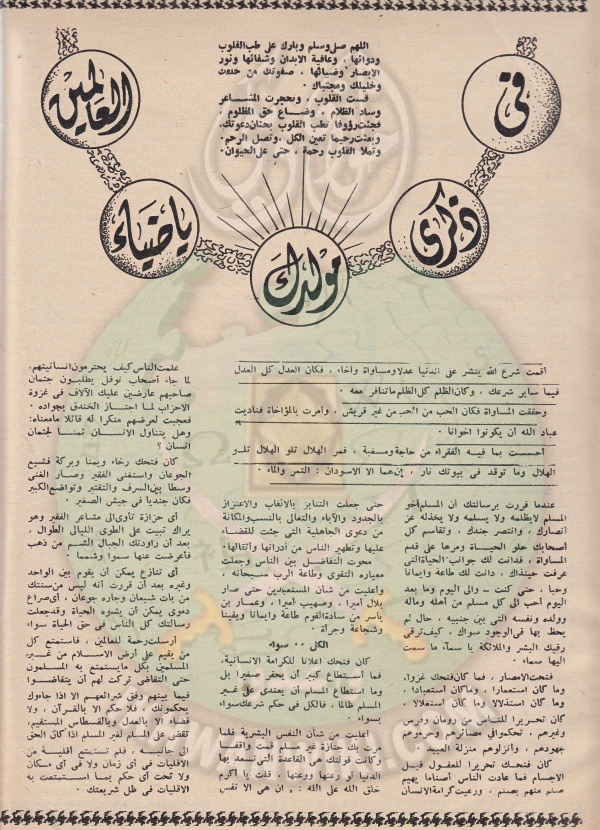 فى
ذكرى
مولدك
ياضياء
العالمين
اللهم صل وسلم وبارك على طب القلوب
ودوائها ، وعافية الابدان وشفائها ونور
الابصار وضيائها ، صفوتك من خلقك
وخليلك ومجتباك .
قست القلوب ، وتحجرت المشاعر
وساد الظلام ، وضاع حق المظلوم ،
فجئت رؤوفا تطب القلوب بحنان دعوتك ،
وبعثت رحيما تعين الكل ، وتصل الرحم .
وتملأ القلوب رحمة ، حتى على الحيوان .
أقمت شرع الله ينشر على الدنيا عدلا ومساواة وأخاء ، فكان العدل كل العدل
فيما ساير شرعك ، وكان الظلم كل الظلم ما تنافر معه .
وحققت المساواة فكان الحب من الحب من غير قريش ، وأمرت بالمؤاخاة فناديت
عباد الله أن يكونوا اخوانا .
أحسست بما فيه الفقراء من حاجة ومسغبة ، فمر الهلال تلو الهلال تلو
الهلال وما توقد فى بيوتك نار ، إن هما الا الاسودان : التمر والماء .
عندما قررت برسالتك أن المسلم أخو
المسلم لا يظلمه ولا يسلمه ولا يخذله عز
أنصارك ، وانتصر جندك ، وتقاسم كل
أصحابك حلو الحياة ومرها على قدم
المساواة ، فدانت لك جوانب الحياة التى
عرفت حينذاك ، دانت لك طاعة وايمانا
وحبا ، حتى كنت - والى اليوم وما بعد
اليوم أحب الى كل مسلم من أهله وماله
وولده ونفسه التى بين جنبيه ، حال لم
يحظ بها فى الوجود سواك ، كيف ترقى
رقيك البشر والملائكة يا سماء ما سمت
اليها سماء .
فتحت الامصار ، فما كان فتحك غزوا،
وما كان استعمارا ، وما كان استعبادا ،
وما كان استذلالا وما كان استغلالا ،
كان تحريرا للناس من رومان وفرس
وغيرهم ، تحكموا فى مصائرهم وحرموهم
جهودهم ، وأنزلوهم منزلة العبيد .
كان فتحك تحريرا للعقول قبل
الاجسام فما عادت الناس أصناما يهيم
صنم منهم بصنم ، ورعيت كرامة الانسان
حتى جعلت التنابز بالالقاب والاعتزاز
بالجدود والآباء والتعالى بالنسب والمكانة
من دعوى الجاهلية التى جئت للقضاء
عليها وتطهير الناس من أدرانها وأثقالها ،
محوت التفاضل بين الناس وجعلت
معياره التقوى وطاعة الرب سبحانه ،
وأعليت من شأن المستعبدين حتى صار
بلال أميرا ، وصهيب أميرا ، وعمار بن
ياسر من سادة القوم طاعة وايمانا ويقينا
وشجاعة وجرأة .
الكل .. سواء
كان فتحك اعلانا للكرامة الانسانية،
فما استطاع كبير أن يحقر صغيرا بل
وما استطاع المسلم أن يعتدى على غير
المسلم ظالما ، فالكل فى حكم شرعك سواء
بسواء .
أعليت من شأن النفس البشرية فلما
مرت بك جنازة غير مسلم قمت واقفا
وكانت قولتك هى القاعدة التى تسعد بها
الدنيا لو وعتها ورعتها ، قلت يا أكرم
خلق الله على الله : ان هى الا نفس
علمت الناس كيف يحترمون انسانيتهم،
لما جاء أصحاب نوفل يطلبون جثمان
صاحبهم عارضين عليك الآلاف فى غزوة
الاحزاب لما اجتاز الخندق بجواده .
فعجبت لعرضهم منكرا له قائلا ما معناه:
وهل يتناول الانسان ثمنا لجثمان
انسان ؟
كان فتحك رخاء ويمنا وبركة فشبع
الجوعان واستغنى الفقير وصار الغنى
وسطا بين السرف والتقتير وتواضع الكبير
فكان جنديا فى جيش الصغير .
أى حزازة تأوى الى مشاعر الفقير وهو
يراك تبيت على الطوى الليالى الطوال ،
بعد أن راودتك الجبال الشم من ذهب
فأعرضت عنها سموا وشمما .
أى تنازع يمكن أن يقوم بين الواحد
وغيره بعد أن قررت أنه ليس من سنتك
من بات شبعان وجاره جوعان ، أى صراع
دموى يمكن أن يشوه الحياة وقد جعلت
رسالتك كل الناس فى حق الحياة سواء
أرسلت رحمة للعالمين ، فاستمتع كل
من يقيم على أرض الاسلام من غير
المسلمين بكل ما يستمتع به المسلمون
حتى التقاضى تركت لهم أن يتقاضوا
فيما بينهم وفق شرائعهم الا اذا جاءوك
يحكمونك ، فلا حكم الا بالقرآن ، ولا
قضاء الا بالعدل وبالقسطاس المستقيم،
تقضى على المسلم لغير المسلم اذا كان الحق
الى جانبه ، فلم تستمتع أقلية من
الاقليات فى أى زمان ولا فى أى مكان
ولا تحت أى حكم بما استمتعت به
الاقليات فى ظل شريعتك .